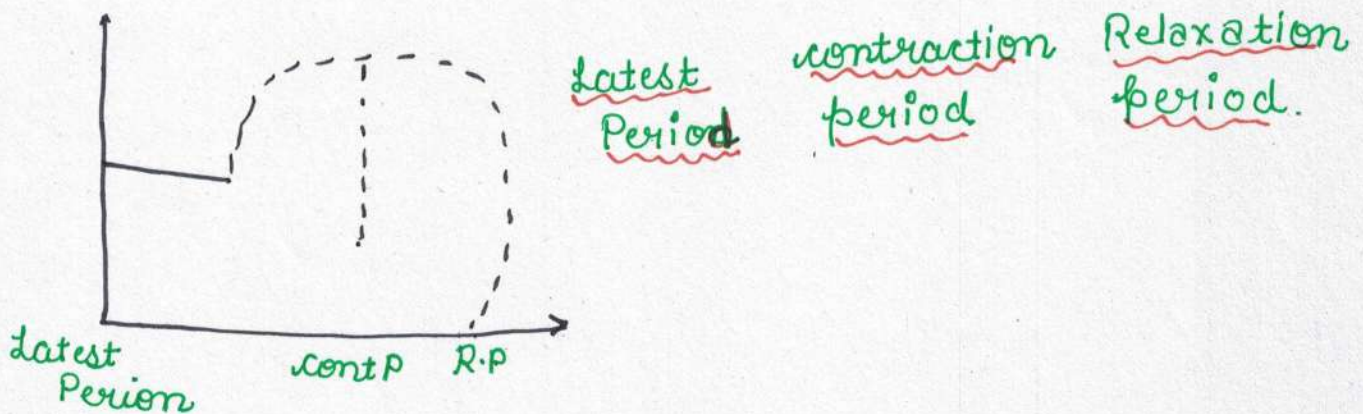 Latest
Period
contraction
period
Relaxation
period.
Latest
Perion
contP
R.P